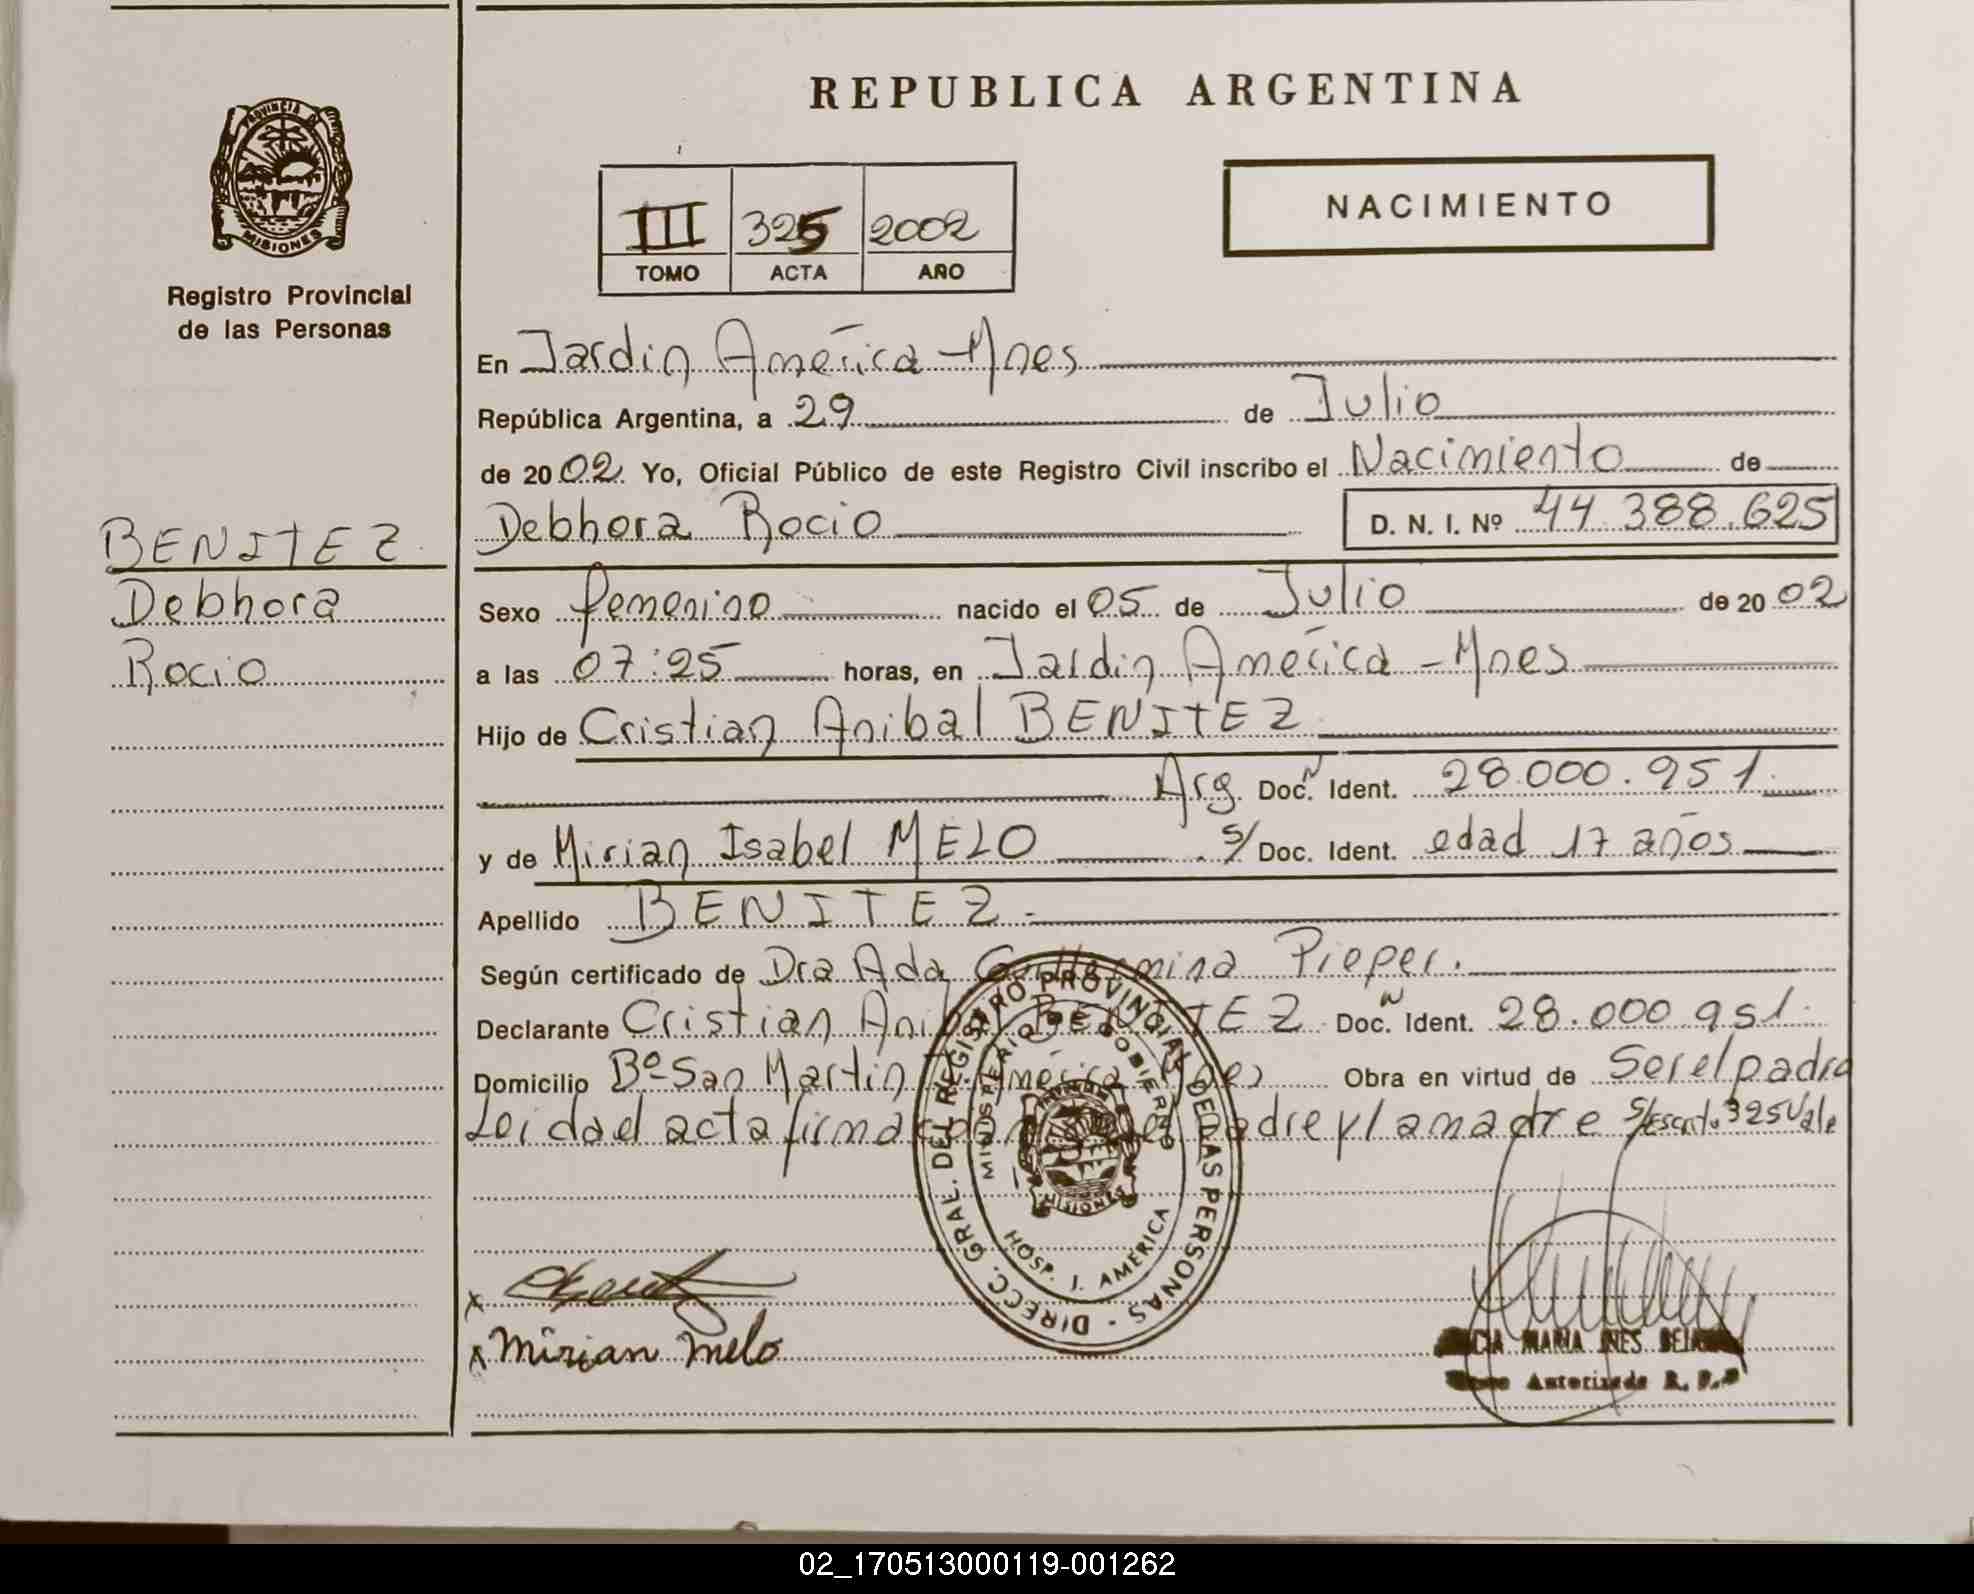 REPUBLICA ARGENTINA
PROVINCIA DE
MISIONES
Registro Provincial
de las Personas
III 325 2002
TOMO ACTA AÑO
NACIMIENTO
BENITEZ
Debhora
Rocio
En Jardin América - Mnes
República Argentina, a 29 de Julio
de 2002 Yo, Oficial Público de este Registro Civil inscribo el Nacimiento de
Debhora Rocio D. N. I. Nº 44 388.625
Sexo femenino nacido el 05 de Julio de 2002
a las 07:25 horas, en Jardin América - Mnes
Hijo de Cristian Anibal BENITEZ
Arg. Doc. N Ident. 28.000.951.
y de Mirian Isabel MELO s/ Doc. Ident. edad 17 años
Apellido BENITEZ.-
Según certificado de Dra Ada Guillermina Pieper.
Declarante Cristian Anibal BENITEZ Doc. N Ident. 28.000.951.
Domicilio Bº San Martin J. América Mnes Obra en virtud de Ser el padre
Leida el acta firman el padre y la madre s/Escrito 325 Vale
DIRECC. GRAL. DEL REGISTRO PROVINCIAL DE LAS PERSONAS
MINISTERIO DE GOBIERNO
MISIONES
HOSP. J. AMERICA
x
x Mirian Melo
MARIA INES
Autorizada R. P. P
02_170513000119-001262